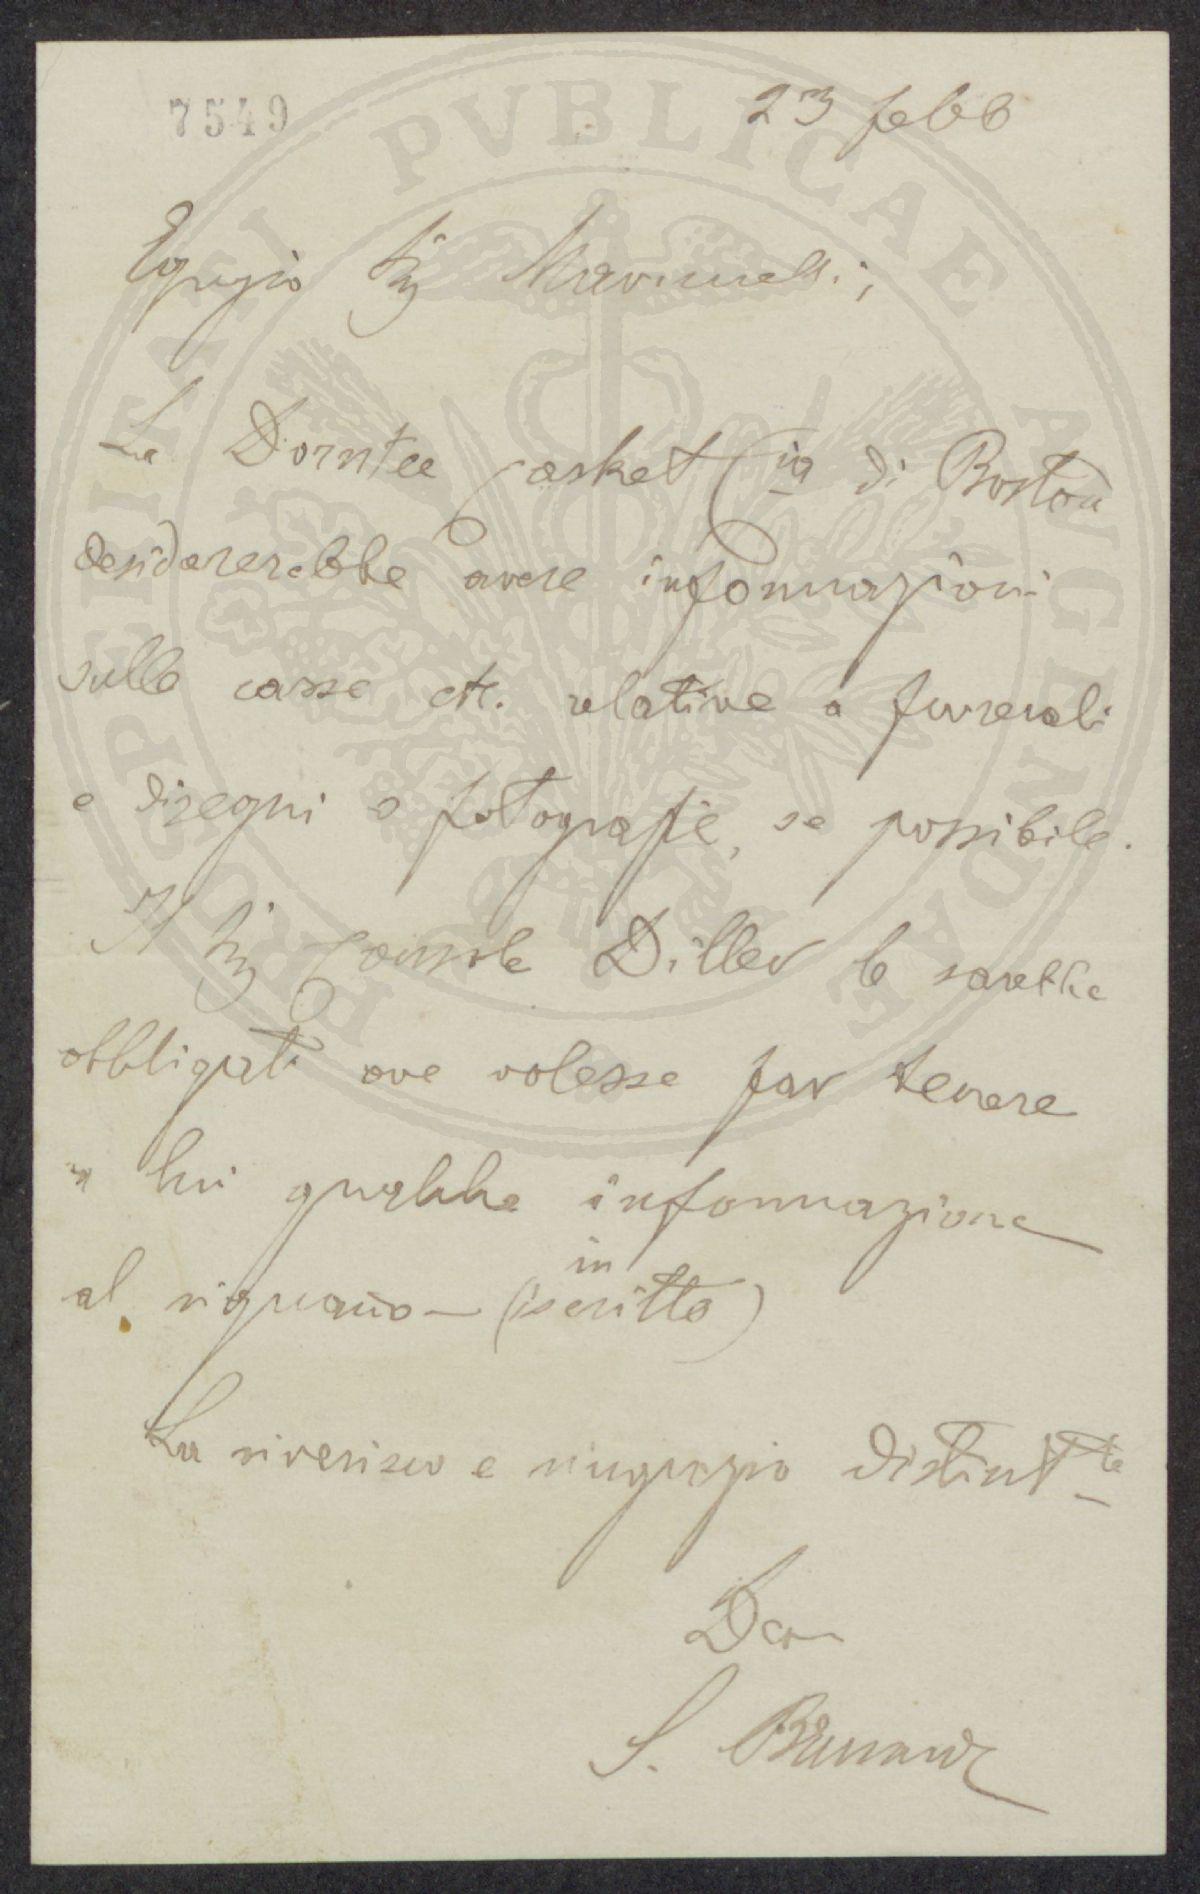 7549
23 febb
Egregio Sig Marinelli;
La Dorntee Casket Cia di Boston
desidererebbe avere informazioni
sulle casse etc. relative a funerali
e disegni o fotografie, se possibile.
Il Sig Console Diller le sarebbe
obbligato ove volesse far tenere
a lui qualche informazione
al riguardo — (in iscritto)
La riverisco e ringrazio distintte
Dev
S.
PROSPERITATI PVBLICAE AVGENDAE